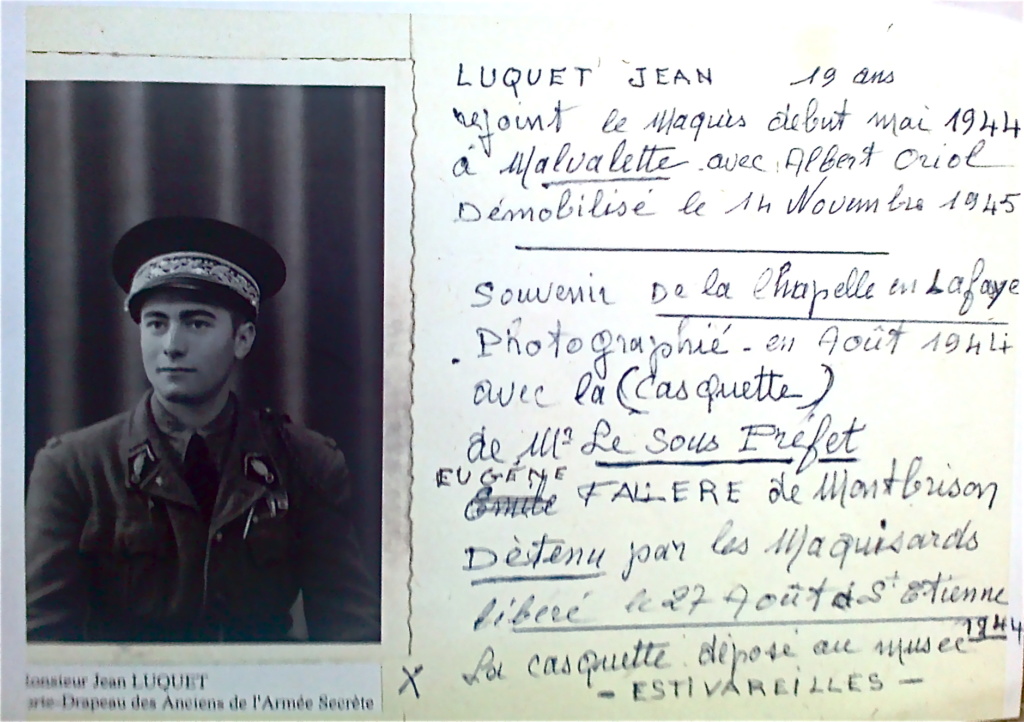 LUQUET JEAN 19 ans
rejoint le Maquis début mai 1944
à Malvalette avec Albert Oriol
Démobilisé le 14 Novembre 1945
Souvenir De la Chapelle en Lafaye
Photographié - en Août 1944
avec la (Casquette)
de Mr Le Sous Préfet
EUGÉNE
FALLERE de Montbrison
Détenu par les Maquisards
libéré le 27 Août à St Etienne
1944
X La casquette déposé au musée
- ESTIVAREILLES -
onsieur Jean LUQUET
orte-Drapeau des Anciens de l'Armée Secrète